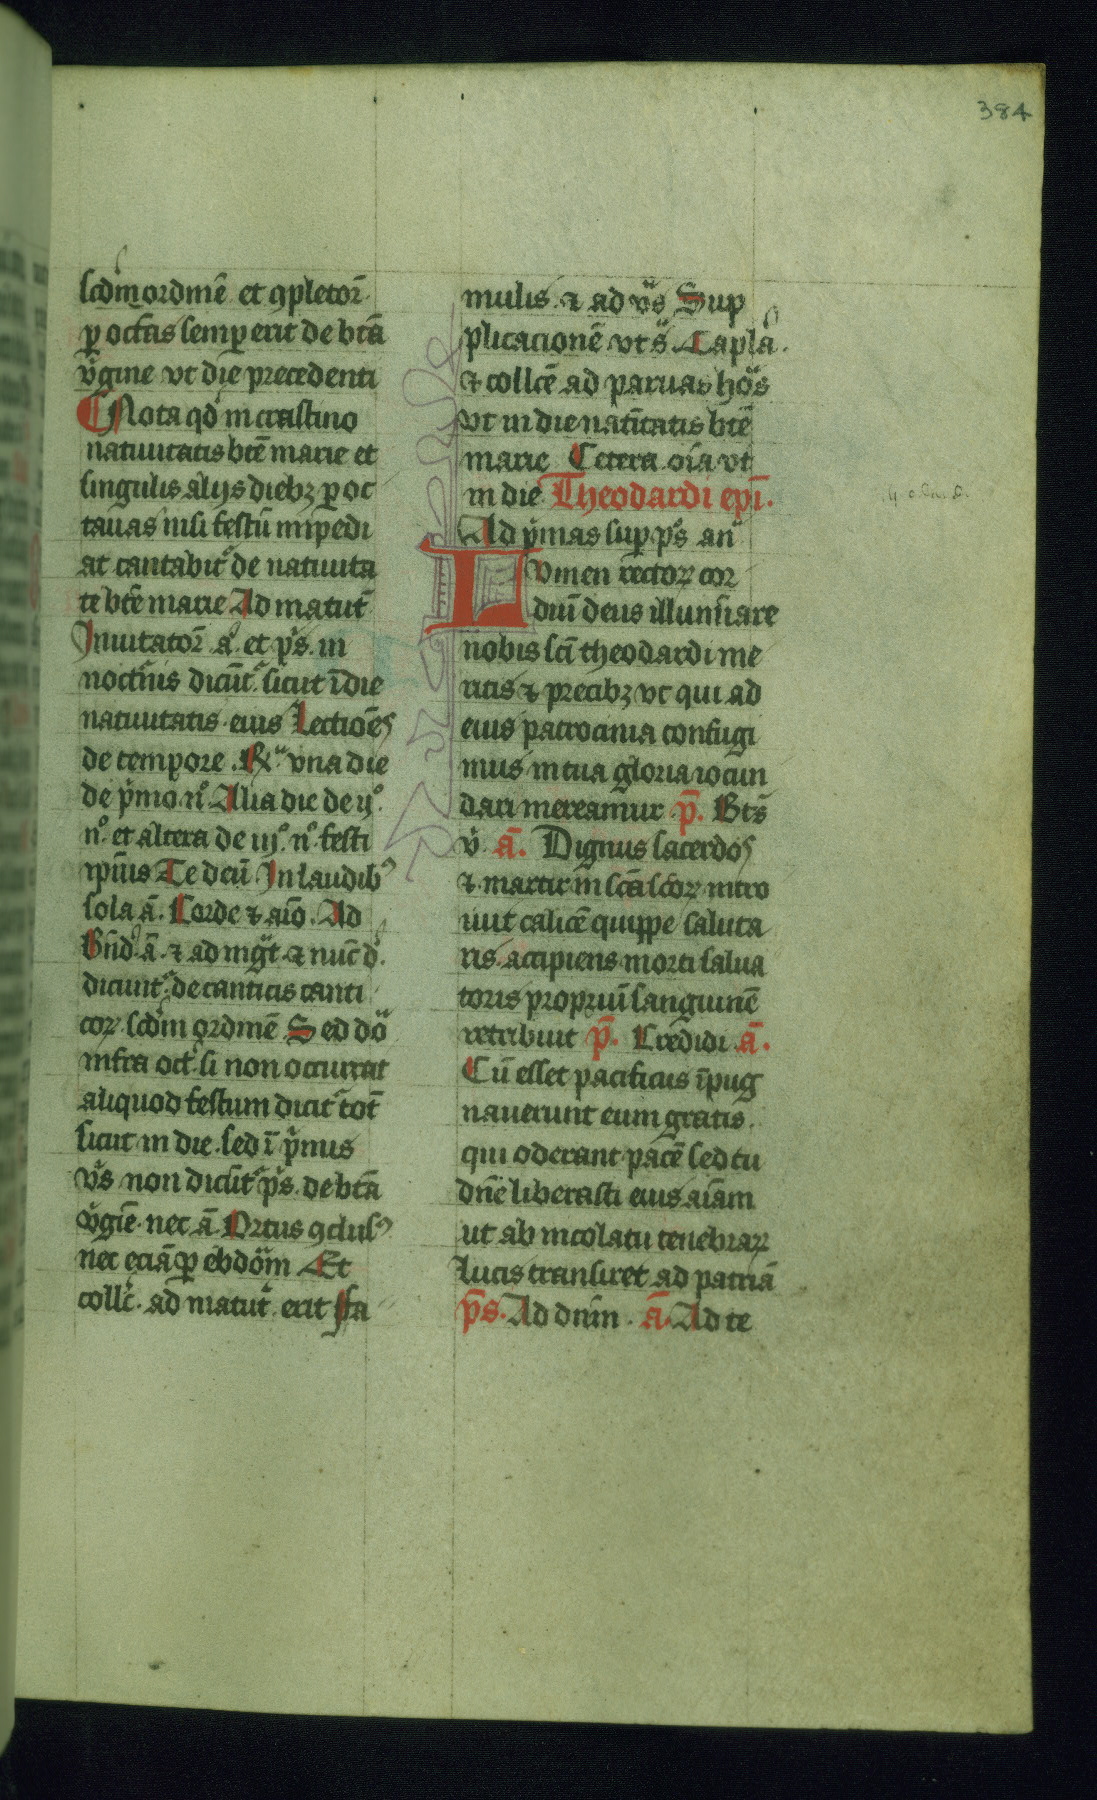 384
scd'm ordinē et ꝯpletor̄
ꝑ octas semꝑ erit de btā
v̓gine vt die precedenti
Nota qd' in crastino
natiuitatis btē marie et
singulis alijs diebꝫ ꝑ oc
tauas nisi festū inpedi
at cantabit᷑ de natiuita
te btē marie Ad matut̄
Inuitator̄ a᷑ et p̄s. in
noct̓nis dicūt᷑ sicut ī die
natiuitatis eius Lectiōes
de tempore. R̄ vna die
de p̓mo n̊. Alia die de ij̊.
n̊. et altera de iij̊. n̊. festi
ipīus Te deū In laudibꝰ
sola ā. Corde ⁊ aīo. Ad
Bn̄d' ā. ⁊ ad mg̃t ⁊ nūc d'.
dicunt᷑ de canticis canti
coꝝ scd'm ordinē Sed dō
infra oct̓ si non occurrat
aliquod festum dicit᷑ tot̄
sicut in die. sed ī p̓mus
v̓s non dicūt᷑ p̄s. de btā
v̓gīe. nec ā. Ortus ꝯclusꝰ
nec eciā ꝑ ebdōm Et
coll̄c. ad matut̓. erit Fa
mulis. ⁊ ad v̓s Sup
plicacionē vt s̓. Capl̄a.
⁊ collc̄ ad paruas hōs
vt in die natītatis btē
marie Cetera oīa vt
in die Theodardi epī.
Ad p̓mas suꝑ p̄s an̄
Lvmen rectoꝝ cor
diū deus illumīare
nobis scī theodardi me
ritis ⁊ precibꝫ vt qui ad
eius patrocinia confugi
mus in tua gloria iocun
dari mereamur p̄. Bt̄s
v̓. ā. Dignus sacerdos
⁊ martir in scā scōꝝ intro
iuit calicē quippe saluta
ris. accipiens morti salua
toris propriū sanguinē
retribuit p̄. Credidi ā.
Cū esset pacificus īpug
nauerunt eum gratis.
qui oderant pacē sed tu
dnē liberasti eius aīam
ut ab incolatu tenebraꝝ
lucis transiret ad patriā
p̄s. Ad dnm̄. ā. Ad te